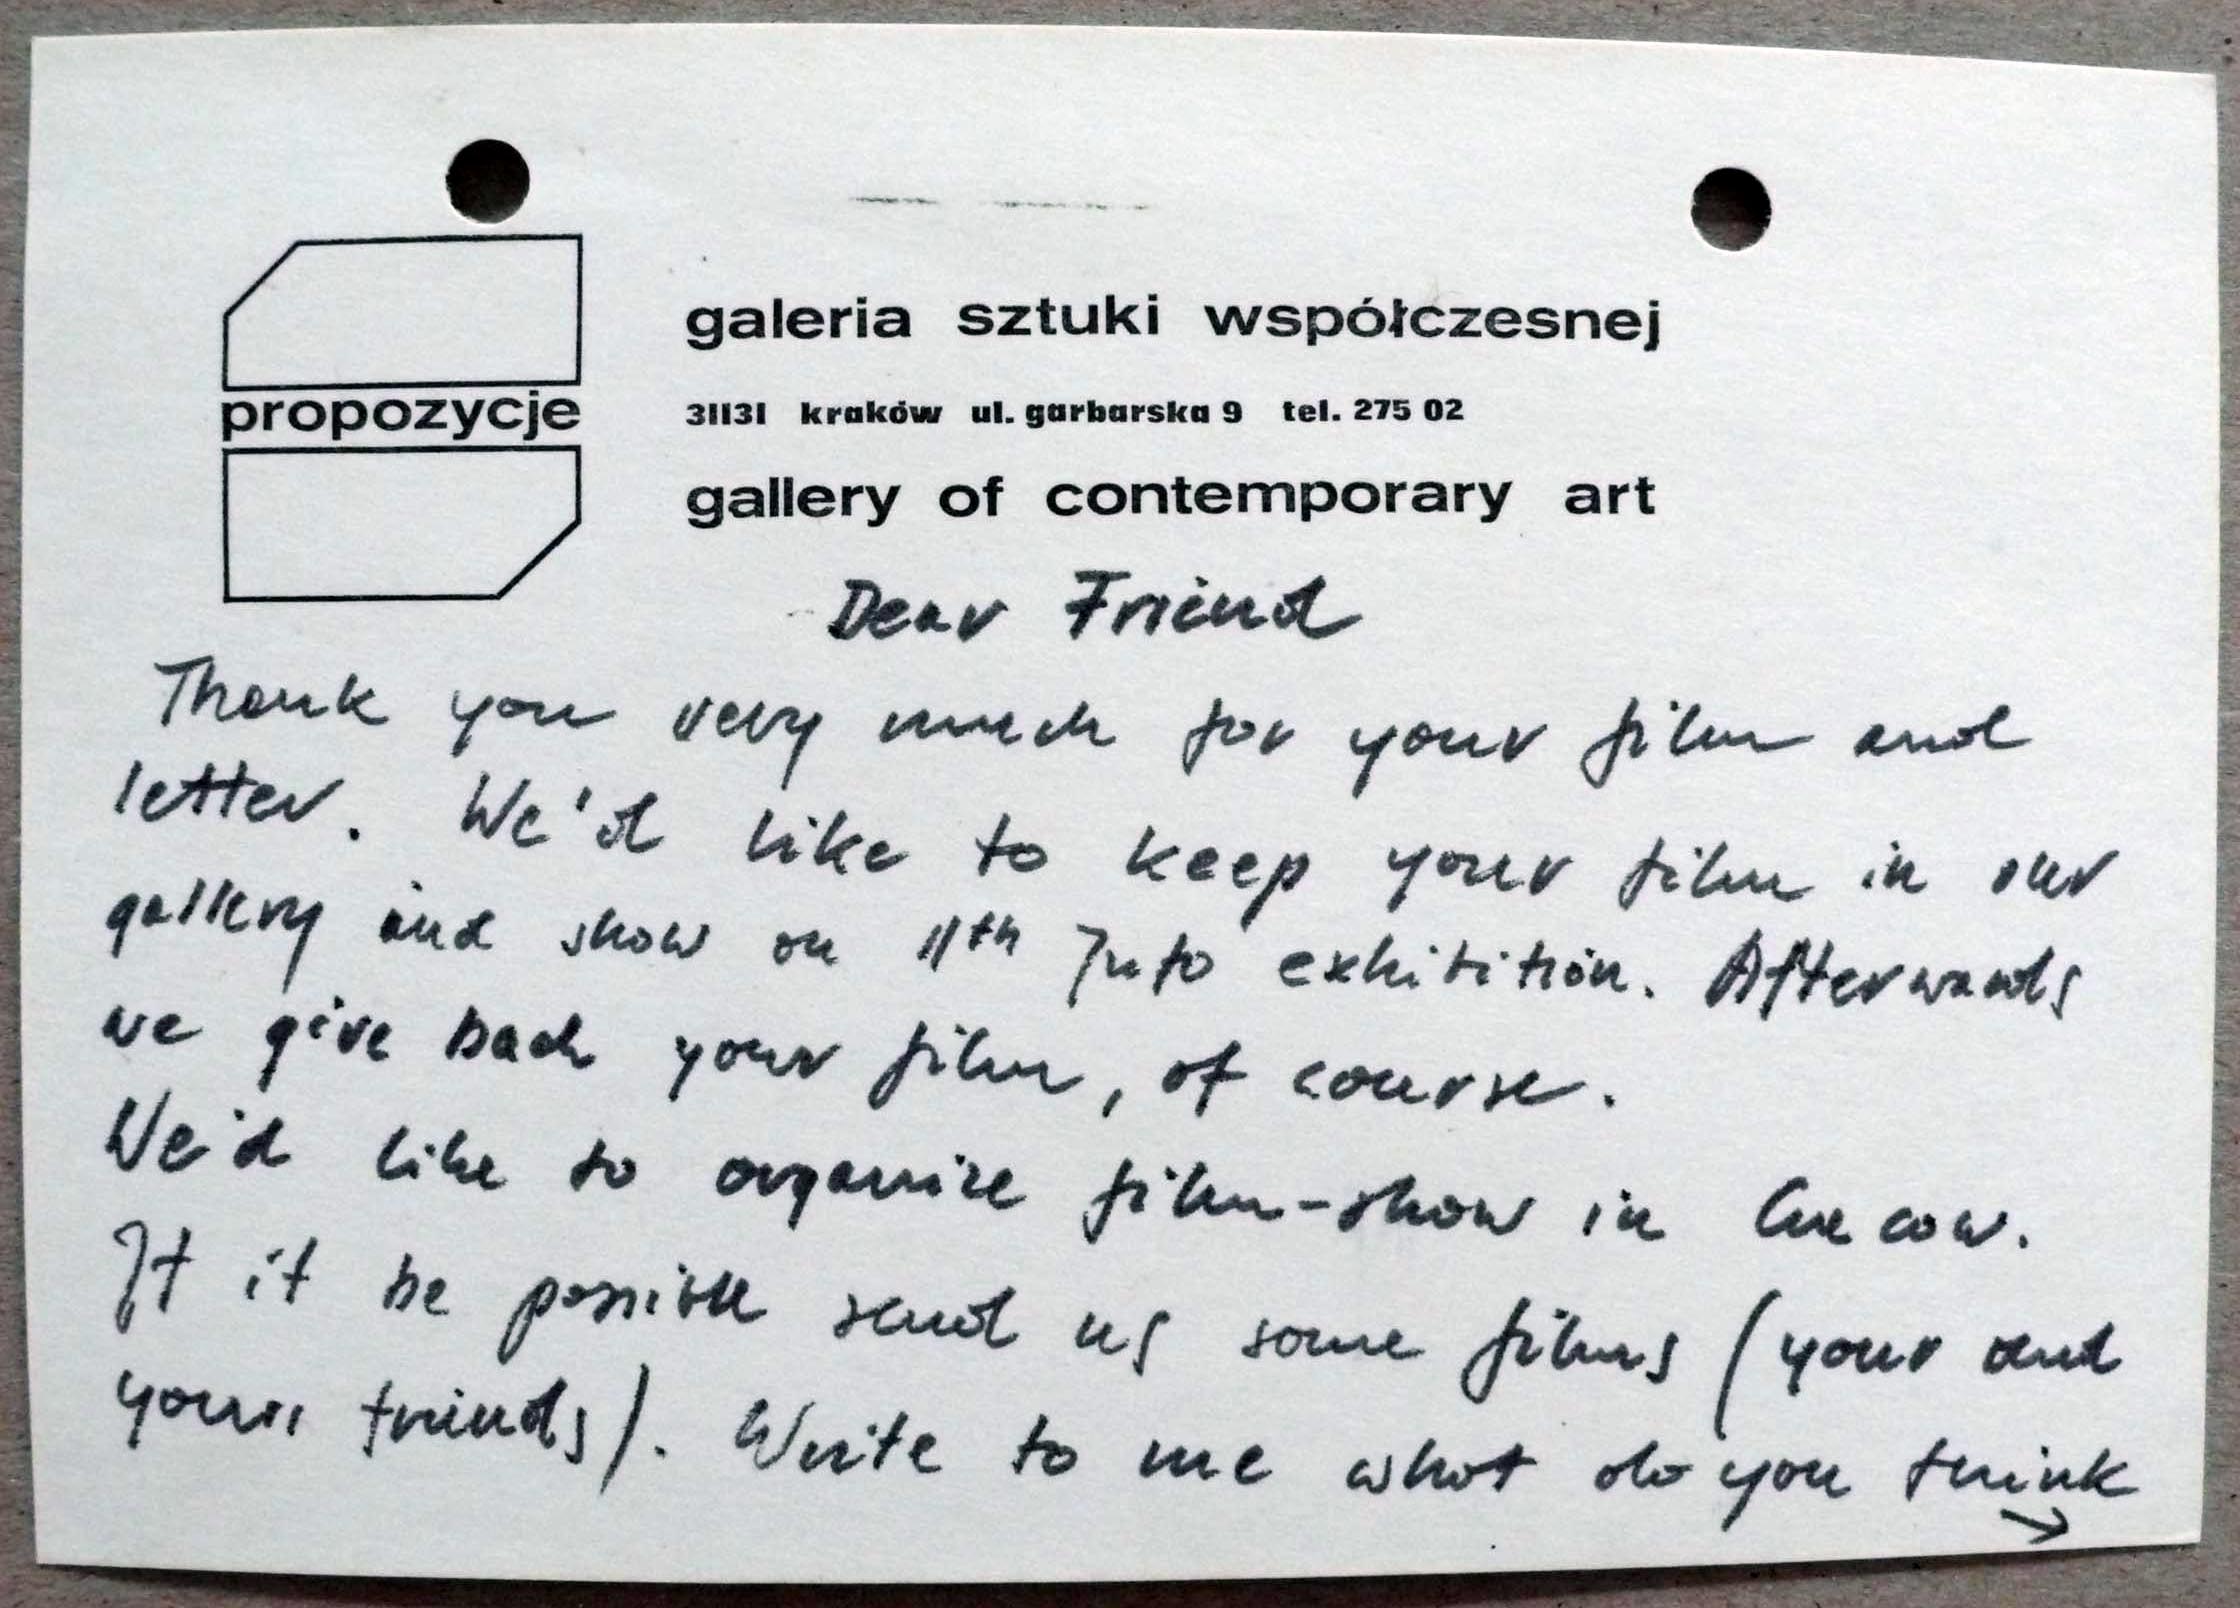 propozycje
galeria sztuki współczesnej
31131 kraków ul. garbarska 9 tel. 275 02
gallery of contemporary art
Dear Friend
Thank you very much for your film and
letter. We'd like to keep your film in our
gallery and show on 11th Info exhibition. Afterwards
we give back your film, of course.
We'd like to organize film-show in Cracow.
If it be possible send us some films (your and
your friends). Write to me what do you think
→